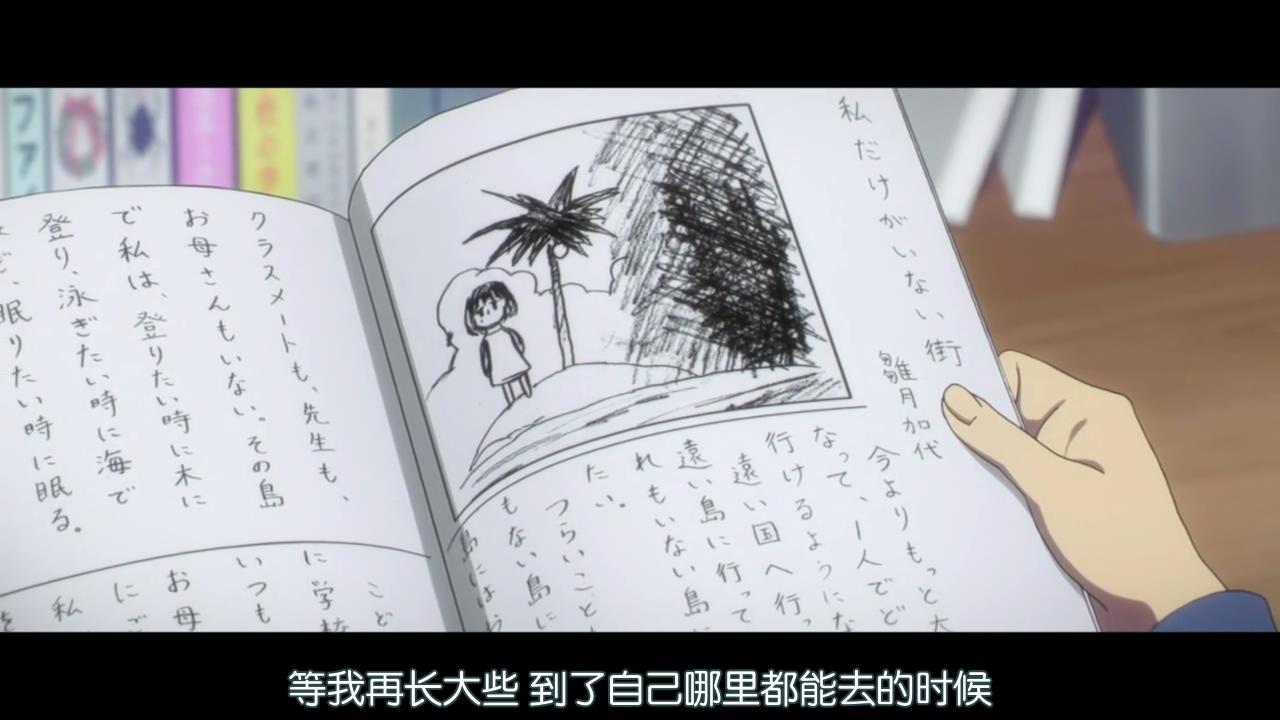 私だけがいない街
雛月加代
今よりもっと大
なって、1人でど
行けるようにな
遠い国へ行っ
遠い島に行って
れもいない島に
たい。
つらいこと
もない島に
島には
クラスメートも、先生も、
お母さんもいない。その島
で私は、登りたい時に木に
登り、泳ぎたい時に海で
眠りたい時に眠る。
こど
に学校
いつも
お母
にど
私
を
ファ
等我再长大些 到了自己哪里都能去的时候